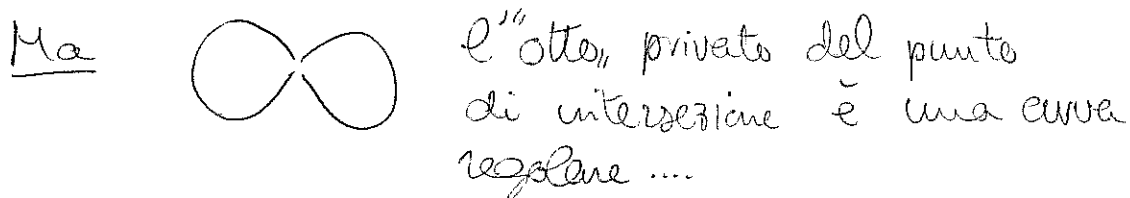 Ma
l'"otto" privato del punto
di intersezione è una curva
regolare ....